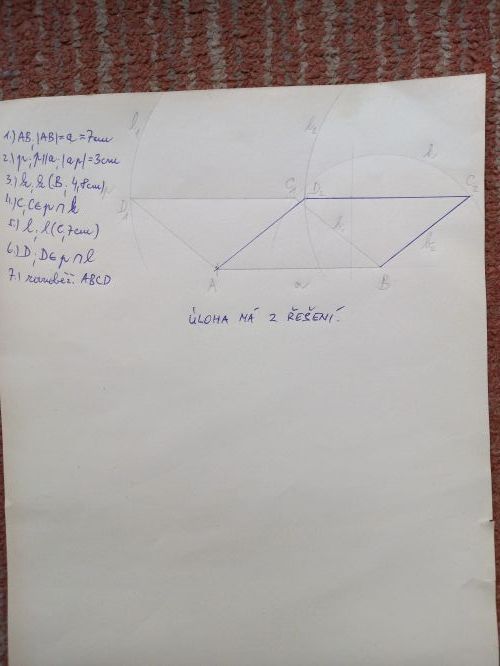 1.) AB, |AB| = a = 7cm
2.) p; p || a; |ap| = 3cm
3.) k; k (B; 4,8cm)
4.) C; C∈p∩k
5.) l; l (C; 7cm)
6.) D; D∈p∩l
7.) rovnoběž. ABCD
l1
l2
k
p
D1
C1
D2
C2
b1
b2
A
a
B
ÚLOHA MÁ 2 ŘEŠENÍ.